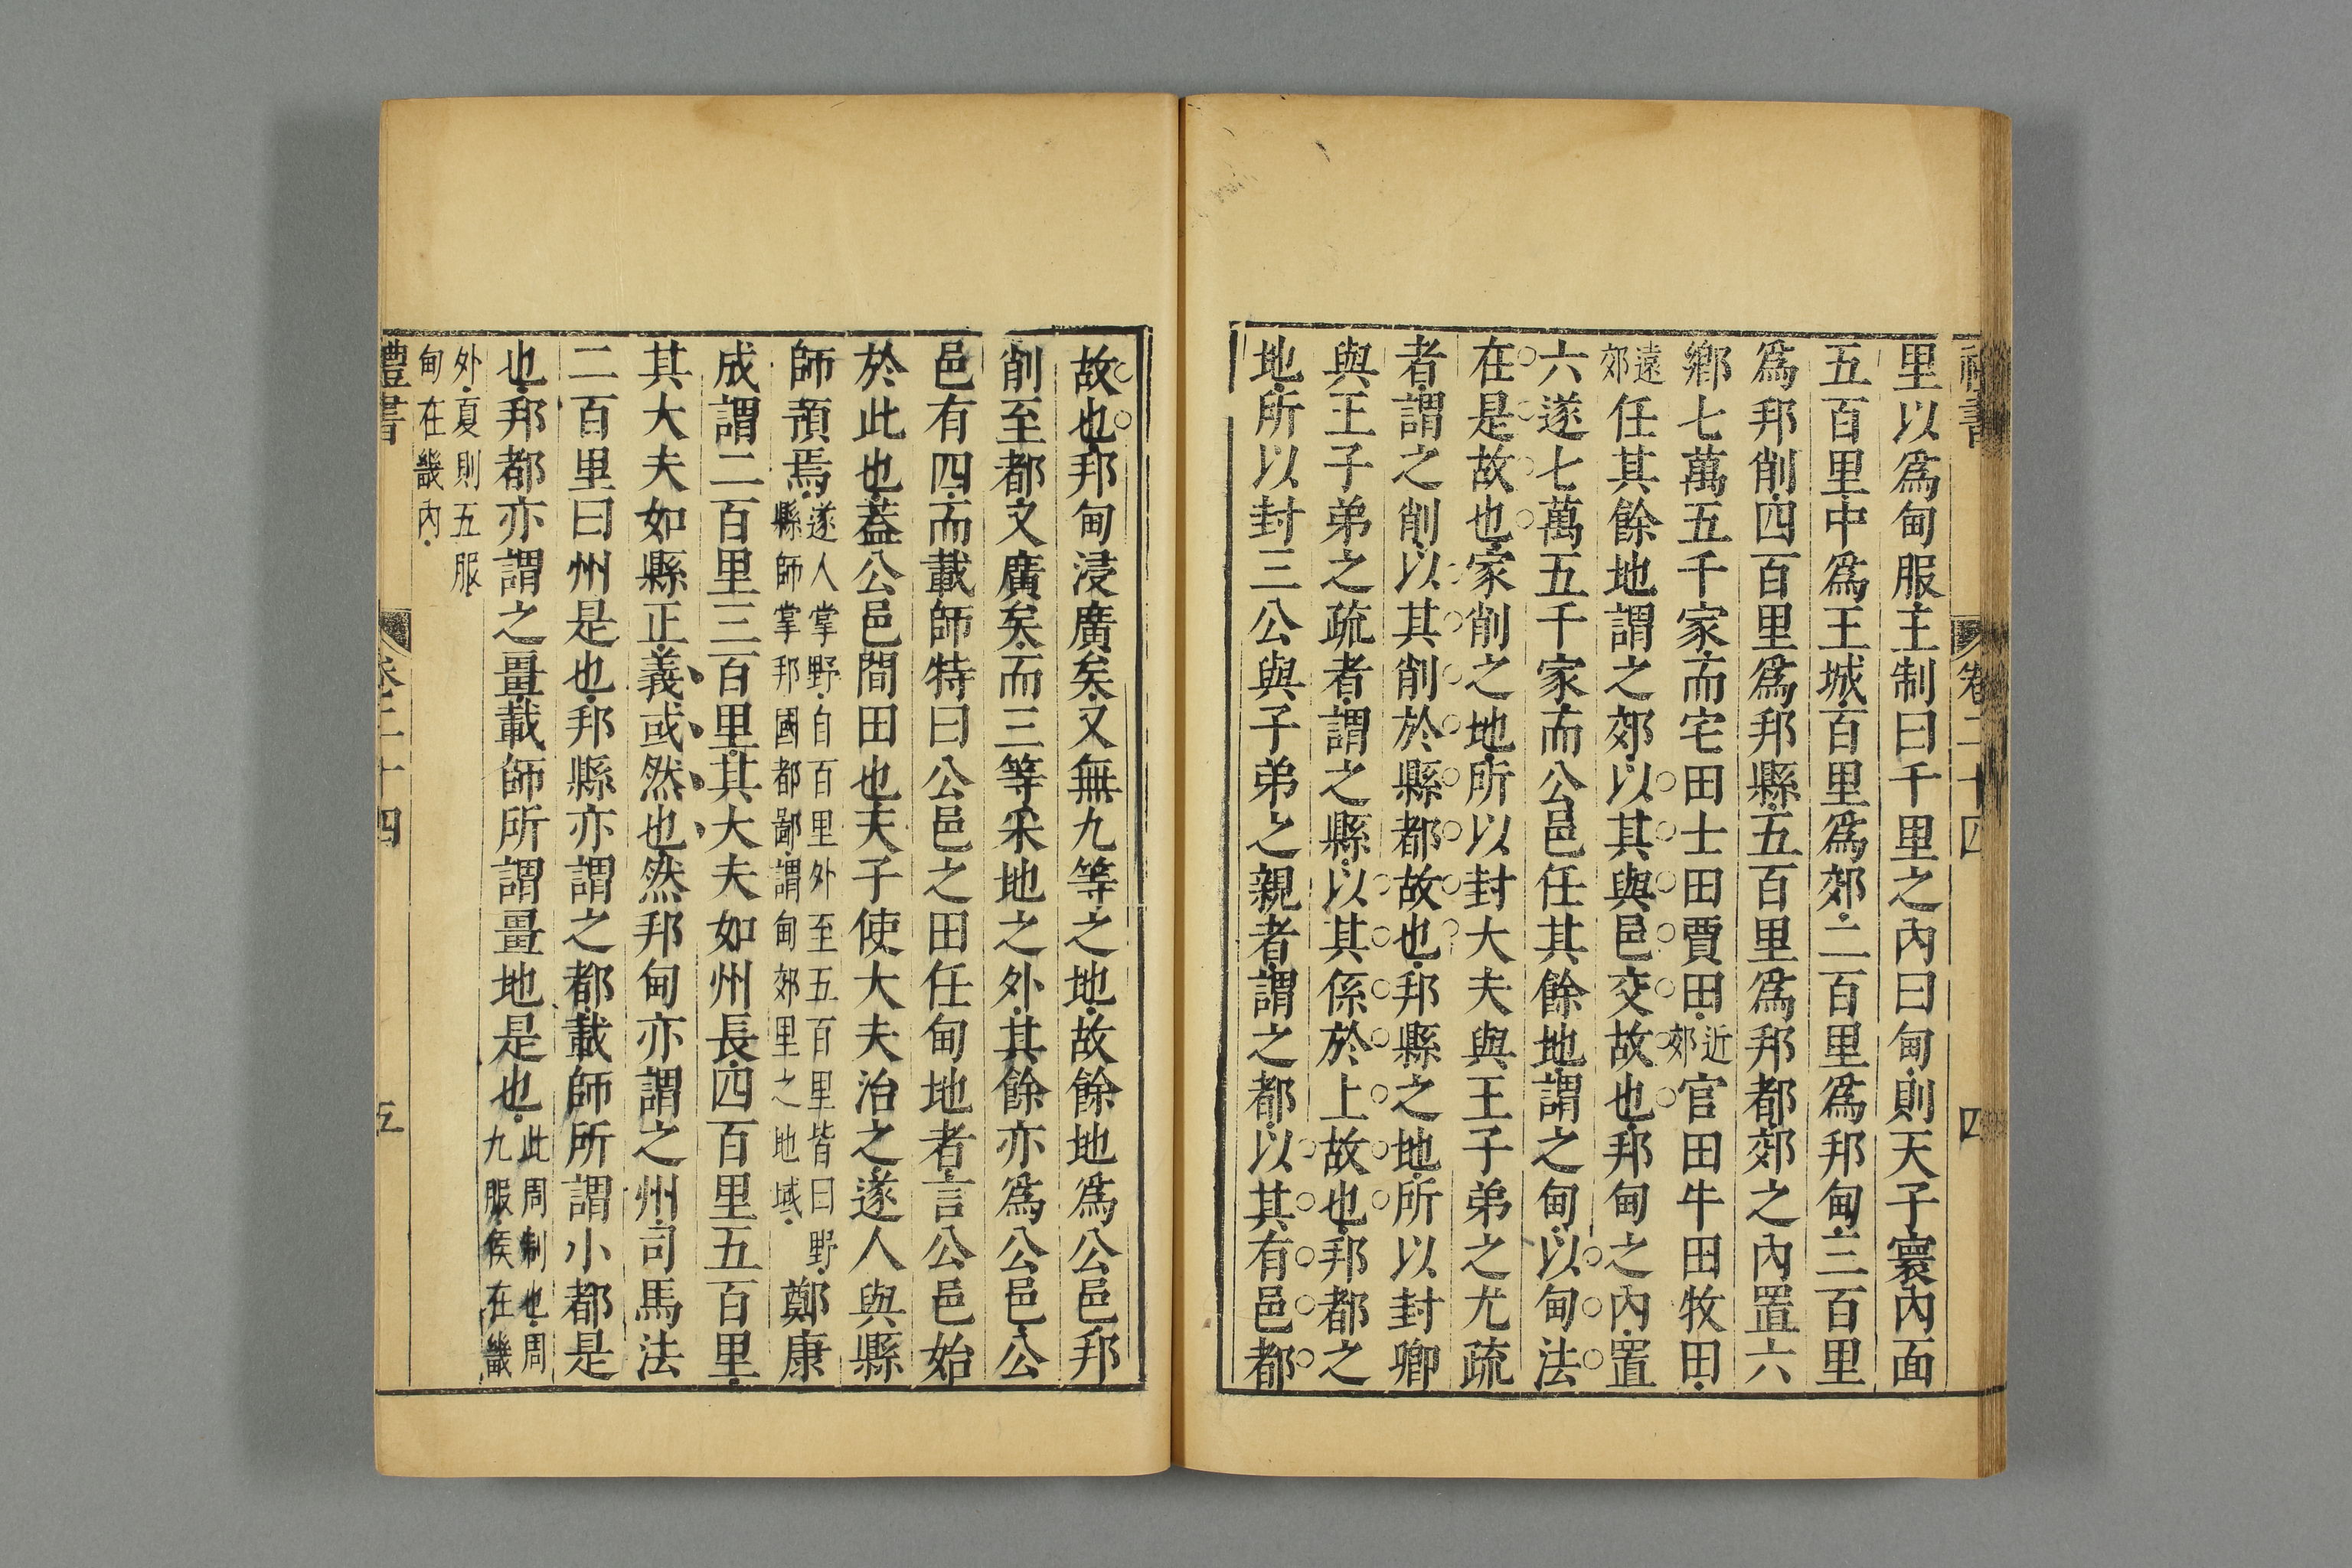 禮書 卷二十四 四
里以爲甸服王制曰千里之內曰甸則天子寰內面
五百里中爲王城百里爲郊二百里爲邦甸三百里
爲邦削四百里爲邦縣五百里爲邦都郊之內置六
鄉七萬五千家而宅田士田賈田近郊官田牛田牧田
遠郊任其餘地謂之郊以其與邑交故也邦甸之內置
六遂七萬五千家而公邑任其餘地謂之甸以甸法
在是故也家削之地所以封大夫與王子弟之尤疏
者謂之削以其削於縣都故也邦縣之地所以封卿
與王子弟之疏者謂之縣以其係於上故也邦都之
地所以封三公與子弟之親者謂之都以其有邑都
故也邦甸浸廣矣又無九等之地故餘地爲公邑邦
削至都又廣矣而三等采地之外其餘亦爲公邑公
邑有四而載師特曰公邑之田任甸地者言公邑始
於此也蓋公邑間田也天子使大夫治之遂人與縣
師預焉遂人掌野自百里外至五百里皆曰野縣師掌邦國都鄙謂甸郊里之地域鄭康
成謂二百里三百里其大夫如州長四百里五百里
其大夫如縣正義或然也然邦甸亦謂之州司馬法
二百里曰州是也邦縣亦謂之都載師所謂小都是
也邦都亦謂之畺載師所謂畺地是也此周制也周九服侯在畿
外夏則五服甸在畿內
禮書 卷二十四 五